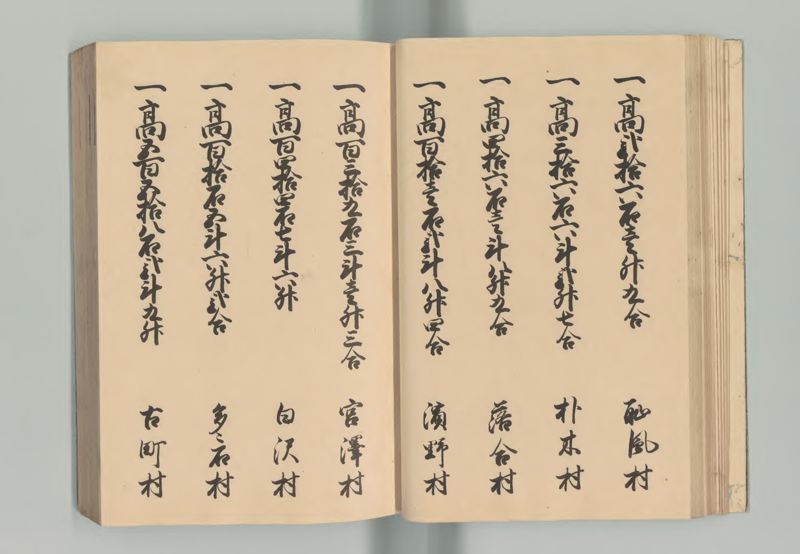 一高弐拾六石壱升九合 耻風村
一高三拾六石六斗弐升七合 朴木村
一高四拾六石壱斗八升九合 落合村
一高百拾壱石弐斗八升四合 濱野村
一高百三拾九石三斗壱升三合 宮澤村
一高百四拾四石七斗六升 白沢村
一高百拾石五斗六升弐合 多々石村
一高五百五拾八石弐斗九升 古町村